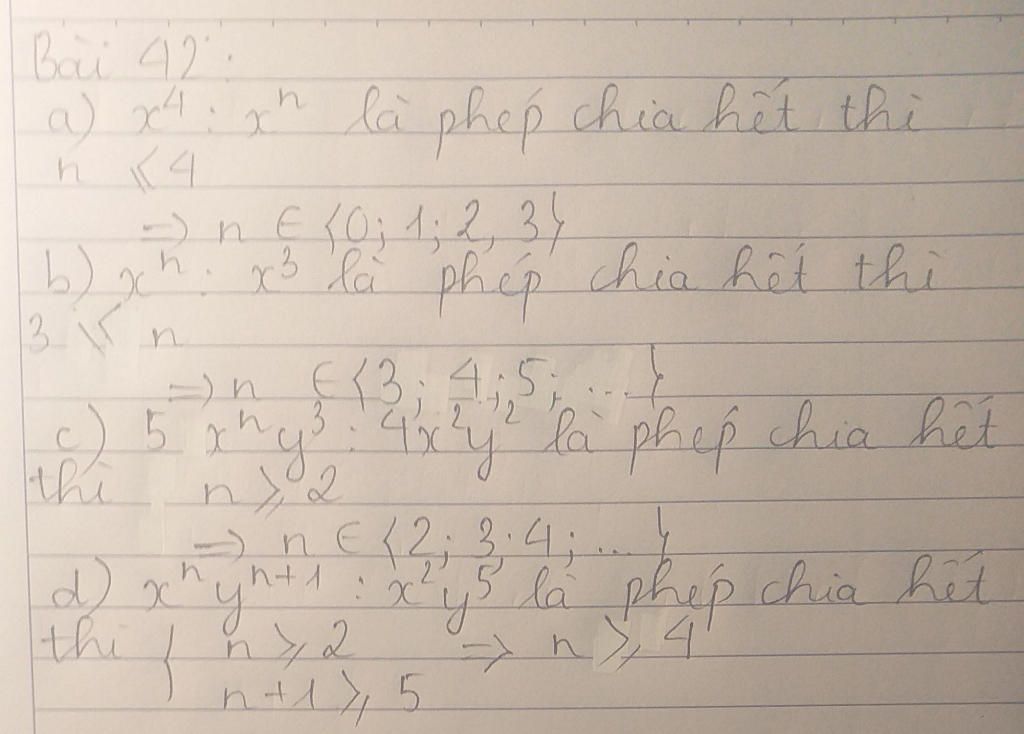 Bài 42:
a) x⁴ : xⁿ là phép chia hết thì
n ⩽ 4
=> n ∈ {0; 1; 2, 3}
b) xⁿ : x³ là phép chia hết thì
3 ⩽ n
=> n ∈ {3; 4; 5; ...}
c) 5 xⁿy³ : 4x²y² là phép chia hết
thì n ⩾ 2
=> n ∈ {2; 3; 4; ...}
d) xⁿyⁿ⁺¹ : x²y⁵ là phép chia hết
thì { n ⩾ 2 => n ⩾ 4
n+1 ⩾ 5